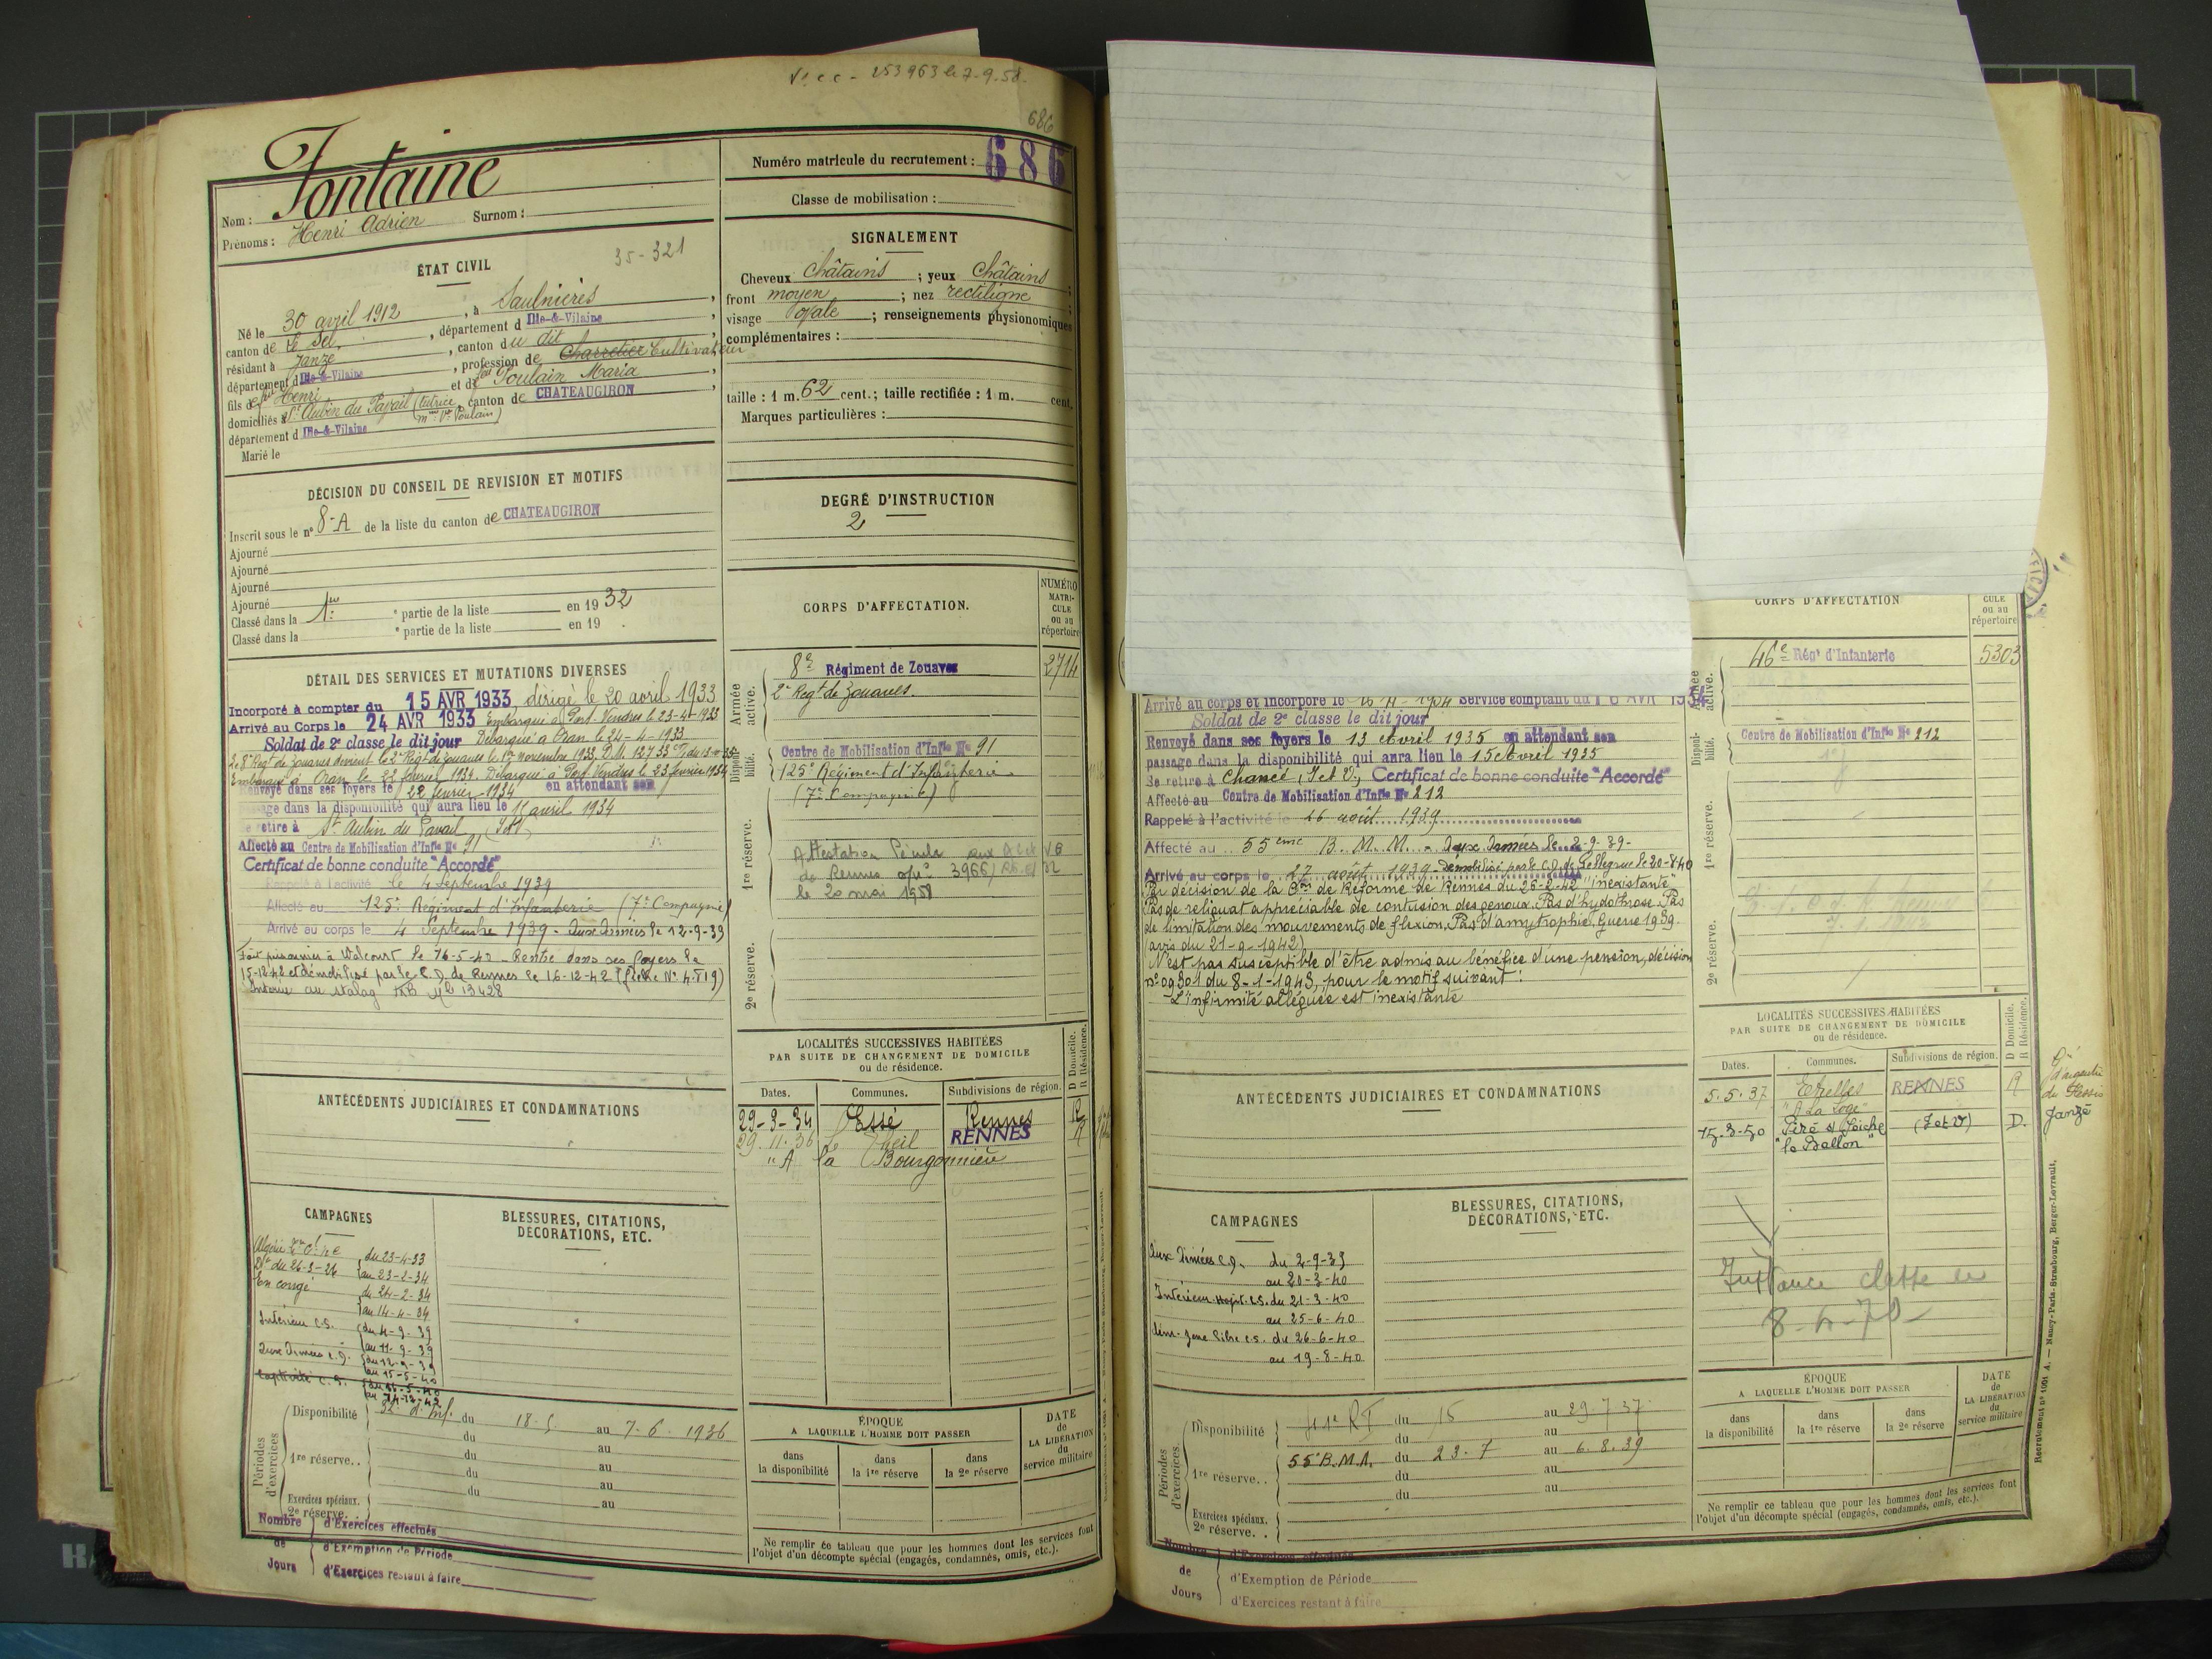 Vº c c - 253963 le 7-9-58
686
Fontaine
Nom :
Surnom :
Prénoms : Henri Adrien
35-321
ÉTAT CIVIL
Né le 30 avril 1912, à Saulnières,
canton de Le Sel, département d Ille-&-Vilaine,
résidant à Janzé, canton du dit,
département d Ille-&-Vilaine, profession de Charretier Cultivateur
fils de feu Henri et de feu Poulain Maria,
domiciliés à St Aubin du Pavail (tutrice canton de CHATEAUGIRON,
département d Ille-&-Vilaine mme Vve Poulain)
Marié le
DÉCISION DU CONSEIL DE REVISION ET MOTIFS
Inscrit sous le nº 8-A de la liste du canton de CHATEAUGIRON
Ajourné
Ajourné
Ajourné
Ajourné
Classé dans la 1re e partie de la liste en 1932
Classé dans la e partie de la liste en 19 .
DÉTAIL DES SERVICES ET MUTATIONS DIVERSES
Incorporé à compter du 15 AVR 1933 dirigé le 20 avril 1933
Arrivé au Corps le 24 AVR 1933 Embarqué à Port-Vendres le 23-4-1933
Soldat de 2e classe le dit jour Débarqué à Oran le 24-4-1933
Le 8e Regt de Zouaves devient le 2e Regt de Zouaves le 1er novembre 1933, D.M.
Embarqué à Oran le 22 février 1934. Débarqué à Port-Vendres le 23 février 1934
Renvoyé dans ses foyers le 22 février 1934 en attendant son
passage dans la disponibilité qui aura lieu le 15 avril 1934
Se retire à St Aubin du Pavail (I et V)
Affecté au Centre de Mobilisation d'Infie Nº 91
Certificat de bonne conduite "Accordé"
Rappelé à l'activité le 4 septembre 1939
Affecté au 125e Régiment d'Infanterie (7e Compagnie)
Arrivé au corps le 4 Septembre 1939 - Aux Armées le 12-9-39
Fait prisonnier à Walcourt le 16-5-40 - Rentré dans ses foyers le
15-12-42 et démobilisé par le C.D. de Rennes le 16-12-42
Interné au stalag Mle 13428
ANTÉCÉDENTS JUDICIAIRES ET CONDAMNATIONS
CAMPAGNES
Algérie
du 23-4-33
du 26-3-26 au 23-2-34
En congé du 24-2-34
au 14-4-34
Intérieur C.S. du 4-9-39
au 11-9-39
Aux Armées C.D. du 12-9-39
au 15-5-40
Captivité C.S. du 16-5-40
au 14-12-42
BLESSURES, CITATIONS,
DÉCORATIONS, ETC.
Périodes d'exercices
Disponibilité 32e d'Inf. du 18-5 au 7-6-1936
du au
1re réserve.. du au
du au
du au
Exercices spéciaux.
2e réserve.. au
Nombre de Jours
d'Exercices effectués
d'Exemption de Période
d'Exercices restant à faire
Numéro matricule du recrutement : 686
Classe de mobilisation :
SIGNALEMENT
Cheveux Châtains ; yeux Châtains ;
front moyen ; nez rectiligne ;
visage ovale ; renseignements physionomiques
complémentaires :
taille : 1 m. 62 cent.; taille rectifiée : 1 m. cent.
Marques particulières :
DEGRÉ D'INSTRUCTION
2
CORPS D'AFFECTATION.
NUMÉRO MATRI-CULE ou au répertoire
Armée active.
8e Régiment de Zouaves 2714
2e Regt de Zouaves.
Disponibilité.
Centre de Mobilisation d'Infie Nº 91
125e Régiment d'Infanterie
(7e Compagnie)
1re réserve.
Attestation
de Rennes 3966
le 20 mai 1958
2e réserve.
LOCALITÉS SUCCESSIVES HABITÉES
PAR SUITE DE CHANGEMENT DE DOMICILE
ou de résidence.
D Domicile. R Résidence.
Dates. Communes. Subdivisions de région.
29-3-34 Essé Rennes R
29.11.36 Le Theil RENNES R
"A la Bourgonnière
ÉPOQUE
A LAQUELLE L'HOMME DOIT PASSER
dans la disponibilité
dans la 1re réserve
dans la 2e réserve
DATE de LA LIBÉRATION du service militaire
Ne remplir ce tableau que pour les hommes dont les services font
l'objet d'un décompte spécial (engagés, condamnés, omis, etc.).
Arrivé au corps et incorporé le Service comptant du AVR 1934
Soldat de 2e classe le dit jour
Renvoyé dans ses foyers le 13 Avril 1935 en attendant son
passage dans la disponibilité qui aura lieu le 15 Avril 1935
Se retire à Chancé, I et V, Certificat de bonne conduite "Accordé"
Affecté au Centre de Mobilisation d'Infie Nº 212
Rappelé à l'activité le 26 août 1939
Affecté au 55ème B. M. M. - Aux Armées le 2-9-39 -
Arrivé au corps le 27 août 1939 - Démobilisé par le C.D. de Pellegrue le 20-8-40
Par décision de la Con de Réforme de Rennes du 26-2-42 "inexistante"
Pas de reliquat appréciable de contusion des genoux. Pas d'hydathrose. Pas
de limitation des mouvements de flexion. Pas d'amytrophie. Guerre 1939
(avis du 21-9-1942)
N'est pas susceptible d'être admis au bénéfice d'une pension, décision
nº 09301 du 8-1-1943, pour le motif suivant :
- L'infirmité alléguée est inexistante
ANTÉCÉDENTS JUDICIAIRES ET CONDAMNATIONS
CAMPAGNES
Aux Armées C.D. du 2-9-39
au 20-3-40
Intérieur-Hopit. C.S. du 21-3-40
au 25-6-40
dém. Zone libre C.S. du 26-6-40
au 19-8-40
BLESSURES, CITATIONS,
DÉCORATIONS, ETC.
Périodes d'exercices
Disponibilité 41e RI du 15 au 29 7 37
du au
55e B.M.M. du 23.7 au 6.8.39
1re réserve.. du au
du au
Exercices spéciaux.
2e réserve..
Nombre de Jours
d'Exercices effectués
d'Exemption de Période
d'Exercices restant à faire
CORPS D'AFFECTATION
CULE ou au répertoire
Armée active.
46e Régt d'Infanterie 5303
Disponibilité.
Centre de Mobilisation d'Infie Nº 212
1re réserve.
2e réserve.
LOCALITÉS SUCCESSIVES HABITÉES
PAR SUITE DE CHANGEMENT DE DOMICILE
ou de résidence.
D Domicile. R Résidence.
Dates. Communes. Subdivisions de région.
5.5.37 RENNES R
"A La Loge"
15-3-50 Piré s/ Seiche (I et V) D.
"le Ballon"
du Plessis
Janzé
classe le
8-4-70
ÉPOQUE
A LAQUELLE L'HOMME DOIT PASSER
dans la disponibilité
dans la 1re réserve
dans la 2e réserve
DATE de LA LIBÉRATION du service militaire
Ne remplir ce tableau que pour les hommes dont les services font
l'objet d'un décompte spécial (engagés, condamnés, omis, etc.).
Recrutement nº 1001 A. — Nancy-Paris-Strasbourg, Berger-Levrault.